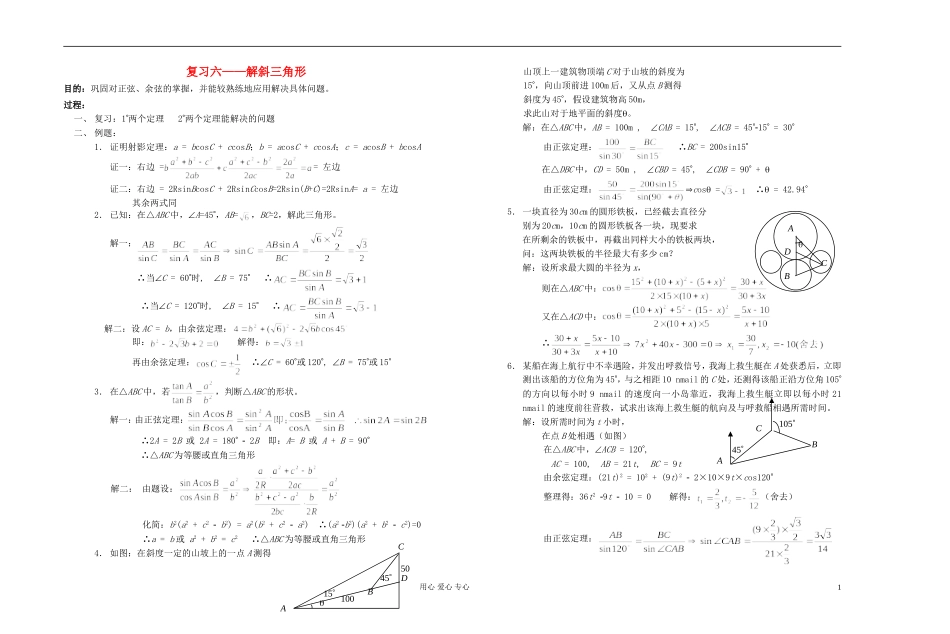 复习六——解斜三角形
目的：巩固对正弦、余弦的掌握，并能较熟练地应用解决具体问题。
过程：
一、 复习：1°两个定理 2°两个定理能解决的问题
二、 例题：
1. 证明射影定理：a = bcosC + ccosB；b = acosC + ccosA；c = acosB + bcosA
证一：右边 = b (a²+b²-c²)/2ab c (a²+c²-b²)/2ac 2a²/2a a = 左边
证二：右边 = 2RsinBcosC + 2RsinCcosB=2Rsin(B+C)=2RsinA= a = 左边
其余两式同
2. 已知：在△ABC中，∠A=45°，AB=√6，BC=2，解此三角形。
解一：AB/sinC BC/sinA AC/sinB ⇒ sinC ABsinB/sinA √6×√2/2 /2 √3/2
∴当∠C = 60°时， ∠B = 75° ∴AC BCsinB/sinA √3+1
∴当∠C = 120°时， ∠B = 15° ∴AC BCsinB/sinA √3-1
解二：设 AC = b，由余弦定理：4=b²+(√6)²-2√6bcos45
即：b²-2√3b+2=0 解得：b=√3±1
再由余弦定理：cosC=±1/2 ∴∠C = 60°或120°，∠B = 75°或15°
3. 在△ABC中，若 tanA/tanB a²/b²，判断△ABC的形状。
解一：由正弦定理：sinAcosB/sinBcosA sin²A/sin²B 即：cosB/cosA sinA/sinB ∴sin2A=sin2B
∴2A = 2B 或 2A = 180° - 2B 即：A= B 或 A + B = 90°
∴△ABC为等腰或直角三角形
解二： 由题设：sinAcosB/cosAsinB a²/b² ⇒ a/2R a²+c²-b²/2ac / b²+c²-a²/2bc b/2R a²/b²
化简：b²(a² + c² - b²) = a²(b² + c² - a²) ∴(a²-b²)(a² + b² - c²)=0
∴a = b或 a² + b² = c² ∴△ABC为等腰或直角三角形
4. 如图：在斜度一定的山坡上的一点 A测得
C
50
D
45°
B
15°
100
θ
A
山顶上一建筑物顶端C对于山坡的斜度为
15°，向山顶前进100m后，又从点B测得
斜度为45°，假设建筑物高50m，
求此山对于地平面的斜度θ。
解：在△ABC中，AB = 100m ， ∠CAB = 15°， ∠ACB = 45°-15° = 30°
由正弦定理：100/sin30 BC/sin15 ∴BC = 200sin15°
在△DBC中，CD = 50m ， ∠CBD = 45°， ∠CDB = 90° + θ
由正弦定理：50/sin45 200sin15/sin(90+θ) ⇒cosθ =√3-1 ∴θ = 42.94°
5. 一块直径为30cm的圆形铁板，已经截去直径分
别为20cm，10cm的圆形铁板各一块，现要求
在所剩余的铁板中，再截出同样大小的铁板两块，
问：这两块铁板的半径最大有多少cm？
解：设所求最大圆的半径为x，
则在△ABC中：cosθ 15²+(10+x)²-(5+x)²/2×15×(10+x) 30+x/30+3x
又在△ACD中：cosθ (10+x)²+5²-(10-x)²/2×(10+x)×5 5x-10/x+10
∴ 30+x/30+3x 5x-10/x+10 ⇒ 7x²+40x-300=0 ⇒ x₁ 30/7, x₂=-10(舍去)
A
θ
D
C
B
6. 某船在海上航行中不幸遇险，并发出呼救信号，我海上救生艇在A处获悉后，立即
测出该船的方位角为45°，与之相距10 nmail的C处，还测得该船正沿方位角105°
的方向以每小时9 nmail的速度向一小岛靠近，我海上救生艇立即以每小时21
nmail的速度前往营救，试求出该海上救生艇的航向及与呼救船相遇所需时间。
解：设所需时间为t小时，
在点B处相遇（如图）
在△ABC中，∠ACB = 120°，
AC = 100， AB = 21t， BC = 9t
由余弦定理：(21t)² = 10² + (9t)² - 2×10×9t×cos120°
整理得：36t² -9t - 10 = 0 解得：t₁ 2/3, t₂ 5/12 （舍去）
由正弦定理：AB/sin120 BC/sin∠CAB ⇒ sin∠CAB (9×2/3)×√3/2 / 21×2/3 3√3/14
C
105°
B
45°
A
用心 爱心 专心
1